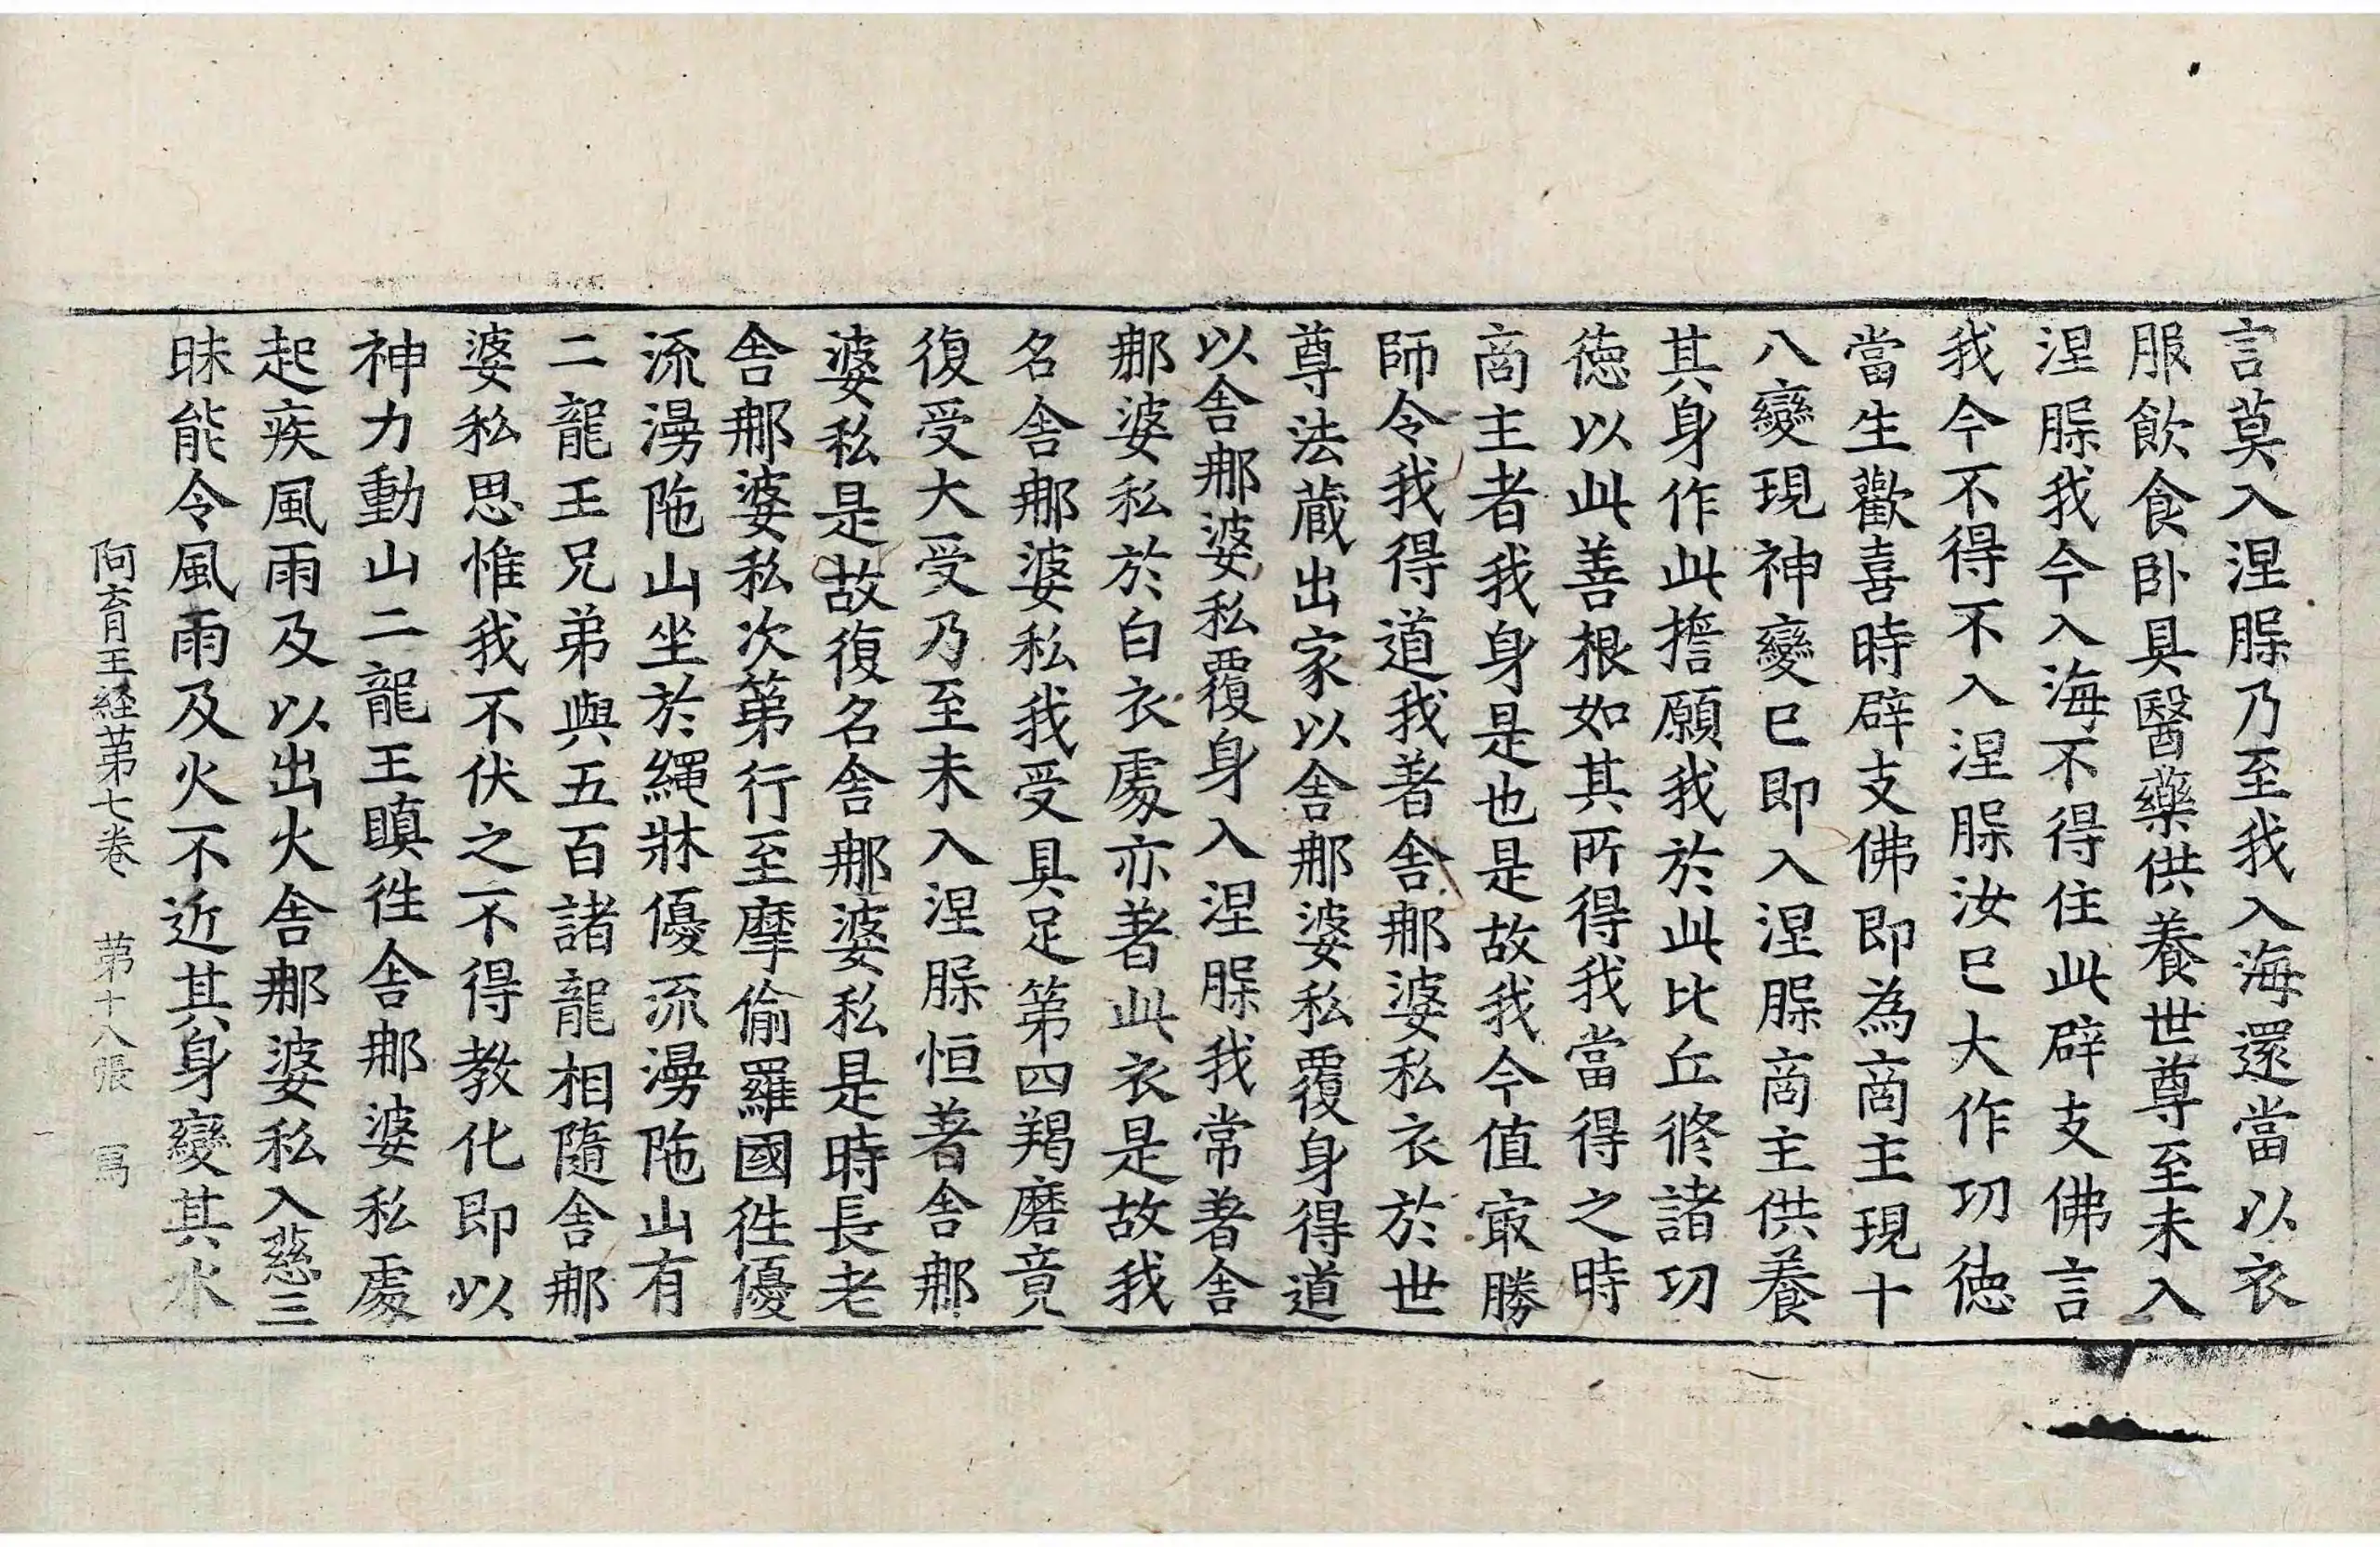 言莫入涅槃乃至我入海還當以衣
服飲食卧具醫藥供養世尊至未入
涅槃我今入海不得住此辟支佛言
我今不得不入涅槃汝已大作功德
當生歡喜時辟支佛即為商主現十
八變現神變已即入涅槃商主供養
其身作此擔願我於此比丘修諸功
德以此善根如其所得我當得之時
商主者我身是也是故我今值㝡勝
師令我得道我著舍那婆私衣於世
尊法藏出家以舍那婆私覆身得道
以舍那婆私覆身入涅槃我常著舍
那婆私於白衣處亦著此衣是故我
名舍那婆私我受具足第四羯磨竟
復受大受乃至未入涅槃恒著舍那
婆私是故復名舍那婆私是時長老
舍那婆私次第行至摩偷羅國徃優
流漫陁山坐於繩牀優流漫陁山有
二龍王兄弟與五百諸龍相隨舍那
婆私思惟我不伏之不得教化即以
神力動山二龍王瞋徃舍那婆私處
起疾風雨及以出火舍那婆私入慈三
昧能令風雨及火不近其身變其水
阿育王経第七巻 第十八張 寫